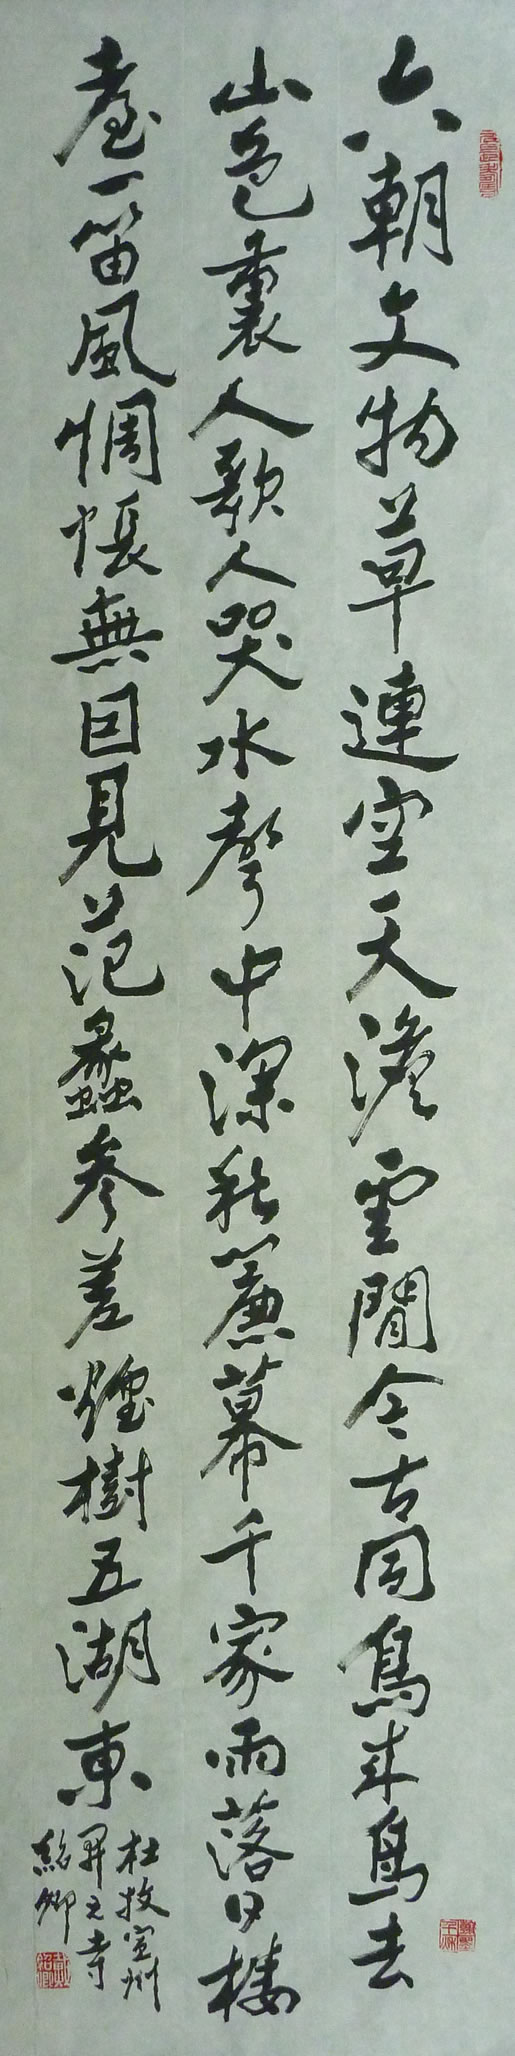 六朝文物草連空天澹雲閒今古同鳥來鳥去
山色裏人歌人哭水聲中深秋簾幕千家雨落日樓
臺一笛風惆悵無因見范蠡參差煙樹五湖東
杜牧宣州
開元寺
紹卿